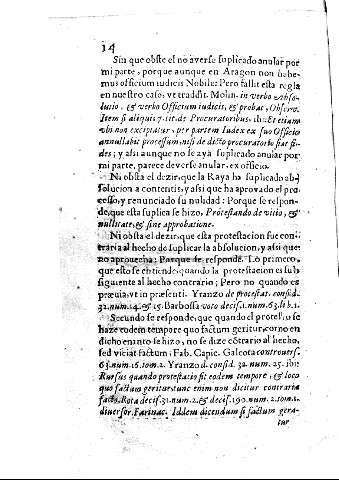 14
Sin que obste el no averse suplicado anular por
mi parte, porque aunque en Aragon non habe-
mus officium iudicis Nobile: Pero fallit esta regla
en nuestro caso, ve traddit. Molin. in verbo absol-
lutio, & verbo Officium iudicis, & probat, Observ.
Item si aliquis 7. tit. de Procuratoribus, ibi: Et etiam
ubi non excipiatur, per partem Iudex ex suo Officio
annullabit processum, nisi de dicto procuratorio fiat fi-
des; y assi aunque no se aya suplicado anular por
mi parte, parece deverse anular, ex officio.
Ni obsta el dezir, que la Raya ha suplicado ab-
solucion a contentis, y assi que ha aprovado el pro-
cesso, y renunciado su nulidad: Porque se respon-
de, que esta suplica se hizo, Protestando de vitio, &
nullitate, & sine approbatione.
Ni obsta el dezir, que dicha protestacion fue con-
traria al hecho de suplicar la absolucion, y assi que
no aprovecha: Porque se responde. Lo primero,
que esto se entiende, quando la protestacion es sub-
siguiente al hecho contrario; Pero no quando es
præuia, vt in præsenti. Yranzo de protestat. consid.
32. num. 14. & 15. Barbossa voto decis. 1. num. 63. lib. 1.
Secundo se responde, que quando el protesto se
haze eodem tempore quo factum geritur, como en
dicho enanto se hizo, no se dize cõtrario al hecho,
sed viciat factum, Fab. Capic. Galeota controuers.
63. num. 16. tom. 2. Yranzo d. consid. 32. num. 25. ibi:
Rursus quando protestatio fit eodem tempore, & loco
quo factum geritur tunc enim non dicitur contraria
facto, Rota decis. 31. num. 2. & decis. 190. num. 2. tom. 1.
diversor. Farinac. Iddem dicendum si factum gera-
tur